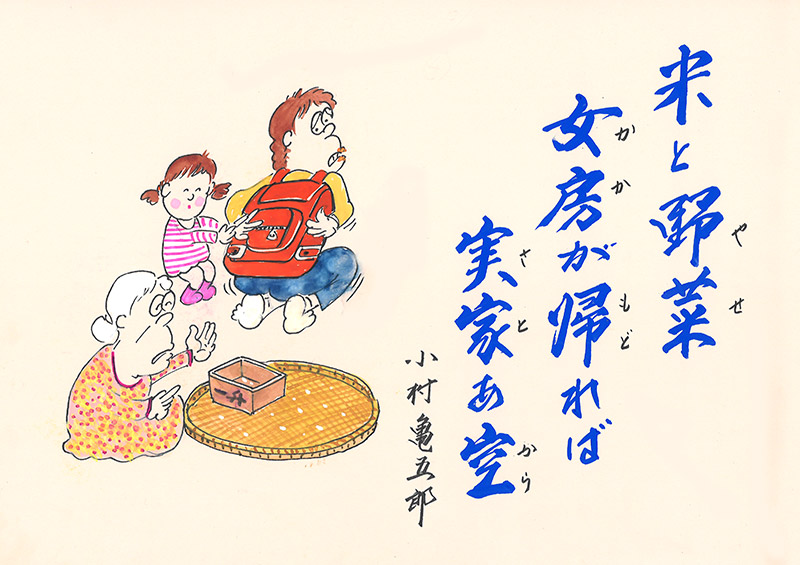 米と野菜
やせ
女房が帰れば
かか
もど
実家あ空
さと
から
小村亀五郎
一升